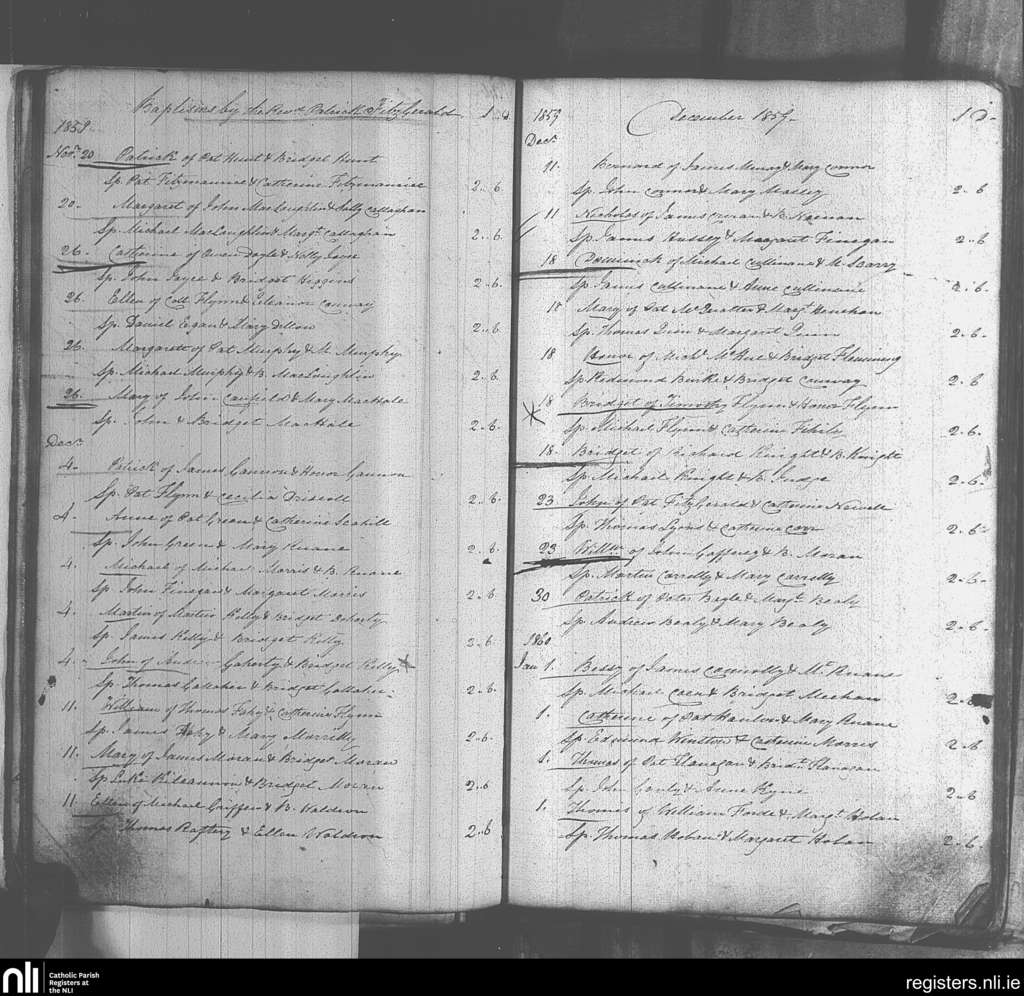 Baptisms by the Revd. Patrick FitzGerald 1 s
1859
Novr. 20 Patrick of Pat Hunt & Bridget Hunt
Sp. Pat Fitzmaurice & Catherine Fitzmaurice 2..6.
20. Margaret of John MacLoughlin & Kelly Callaghan
Sp. Michael MacLoughlin & Margt. Callaghan 2..6.
26. Catherine of Owen Doyle & Nelly Joyce
Sp. John Joyce & Bridget Higgins 2..6
26. Ellen of Coll Flynn & Eleanor Conway
Sp. Daniel Egan & Mary Dillon 2..6.
26. Margarett of Pat Murphy & M. Murphy
Sp. Michael Murphy & B. MacLoughlin 2..6.
26. Mary of John Canfield & Mary MacHale
Sp. John & Bridget MacHale 2..6.
Decr.
4. Patrick of James Cannon & Honor Cannon
Sp. Pat Flynn & Cecilia Driscoll 2..6.
4. Anne of Pat Green & Catherine Scahill
Sp. John Green & Mary Ruane 2..6.
4. Michael of Michael Morris & B. Ruane
Sp. John Finegan & Margaret Morris 2..6
4. Martin of Martin Kelly & Bridget Doherty
Sp. James Kelly & Bridget Kelly 2..6
4. John of Andrew Goherty & Bridget Kelly
Sp. Thomas Gallaher & Bridget Gallaher 2..6.
11. William of Thomas Fahy & Catherine Flynn
Sp. James Fahy & Mary Morrilly 2..6.
11. Mary of James Moran & Bridget Moran
Sp. Luke Kileannon & Bridget Moran 2..6
11 Ellen of Michael Griffin & B. Waldron
Sp. Thomas Raftery & Ellen Waldron 2..6
1859 December 1859. 1 s
Decr.
11. Bernard of James Henry & Mary Connor
Sp. John Connor & Mary Massey 2..6
11 Nicholas of James Moran & B. Noonan
Sp. James Hussey & Margaret Finegan 2..6
18 Dominick of Michael Cullinane & M. Scarry
Sp. James Cullinane & Anne Cullinane 2..6.
18 Mary of Pat & Margt. Heneghan
Sp. Thomas Quinn & Margaret Quinn 2..6
18 Honor of Michl. McHue & Bridget Flemming
Sp. Redmond Burke & Bridget Conway 2..6
18 Bridget of Timothy Flynn & Honor Flynn
Sp. Michael Flynn & Catherine 2..6.
18. Bridget of Richard Knight & B. Knight
Sp. Michael Knight & B. Judge 2..6.
23 John of Pat FitzGerald & Catherine Newell
Sp. Thomas Lyons & Catherine Carr 2..6
23 Willm of John Gaffney & B. Moran
Sp. Martin Connolly & Mary Connolly 2..6.
30 Patrick of Peter Boyle & Margt. Bealy
Sp. Andrew Bealy & Mary Bealy 2..6.
1860
Jan 1. Bessy of James Connolly & M. Ruane
Sp. Michael Coen & Bridget Meehan 2..6
1. Catherine of Pat Hanlon & Mary Ruane
Sp. Edmund Winston & Catherine Morris 2..6
1. Thomas of Pat Flanagan & Bridt. Flanagan
Sp. John Conly & Anne Kyne 2..6
1. Thomas of William Forde & Margt. Hoban
Sp. Thomas Hoban & Margaret Hoban 2..6.
nli Catholic Parish
Registers at
the NLI
registers.nli.ie